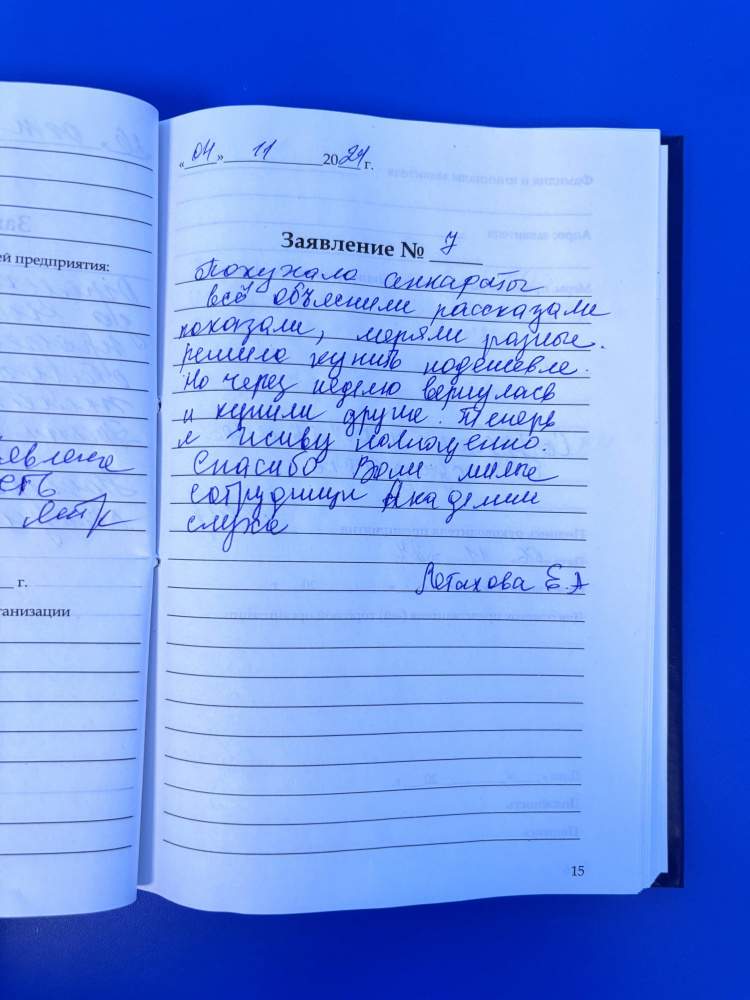 ей предприятия:
явлена
есть
г.
ганизации
«04» 11 2024 г.
Заявление № 7
Покупала аппараты
всё объяснили рассказали
показали, меряли разные.
решила купить подешевле.
Но через неделю вернулась
и купили другие. Теперь
я живу полноценно.
Спасибо Вам милые
сотрудницы Академии
слуха
Е.А
15